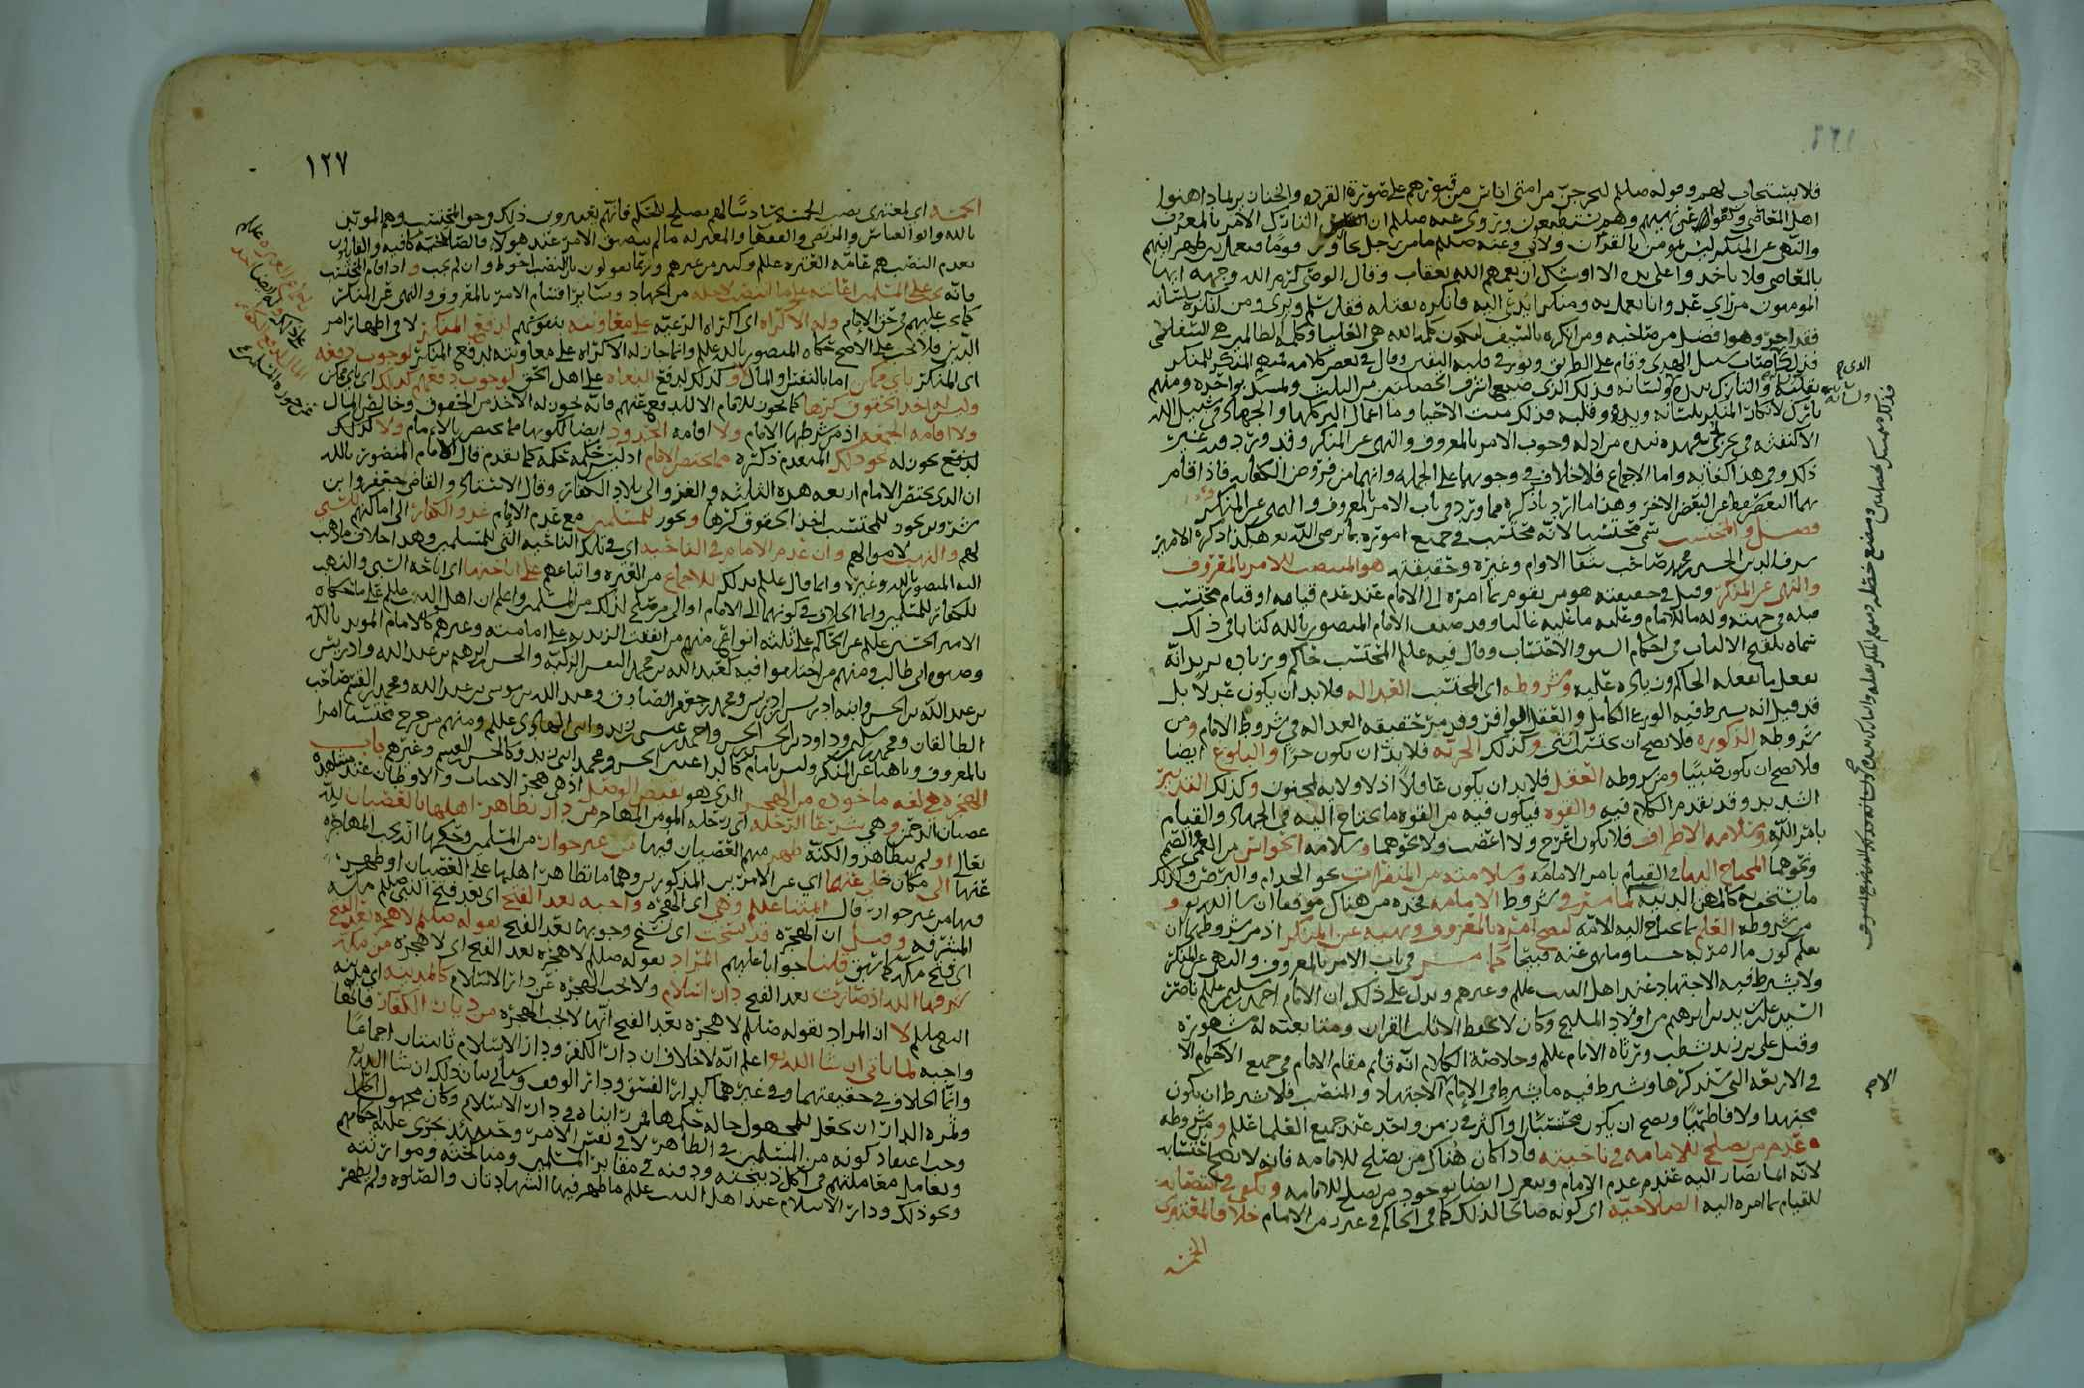 فلا يستجاب لهم وقوله صللم ليحرجن من امتي اناس من قبورهم على صورة القرده والخنازير بما داهنوا
اهل المعاصي وكفوا عن نهيهم وهم يستطيعون وروي عنه صللم ان التارك الامر بالمعروف
والنهي عن المنكر ليس بمومن بالقرآن ولا بي وعنه صللم ما من رجل
بالمعاصي فلا ياخذوا على يده الا اوشك ان يعمهم الله بعقاب وقال الوصي كرم الله وجهه ايها
المومنون من راي عدوانا يعمل به ومنكرا يدعى اليه فانكره بقلبه فقد سلم وبري ومن انكره بلسانه
فقد اجر وهو افضل من صاحبه ومن انكره بالسيف لتكون كلمة الله هي العليا وكلمة الظالمين هي السفلى
فذلك اصاب سبيل الهدى وقام على الطريق ونور في قلبه اليقين وقال في بعض كلامه فمنهم المنكر للمنكر
بقلبه والتارك بيده ولسانه فذلك الذي ضيع اشرف الخصلتين من الثلاث وتمسك بواحده ومنهم
تارك لانكار المنكر بلسانه ويده وقلبه فذلك ميت الاحيا وما اعمال البر كلها والجهاد في سبيل الله
الا كنفثه في بحر لجي فهذه نبذه من ادله وجوب الامر بالمعروف والنهي عن المنكر وقد ورد فيه غير
ذلك وفي هذا كفايه واما الاجماع فلا خلاف في وجوبهما على الجمله وانهما من فروض الكفايه فاذا قام
بهما البعض سقط عن البعض الاخر وهذا ما اردنا ذكره مما ورد في باب الامر بالمعروف والنهي عن المنكر
فصل والمحتسب سمي محتسبا لانه محتسب في جميع اموره بما يرضي الله تعالى هكذا ذكره الامير
شرف الدين الحسين بن محمد صاحب شفا الاوام وغيره وحقيقته هو المنتصب للامر بالمعروف
والنهي عن المنكر وقيل في حقيقته هو من يقوم بما امره الى الامام عند عدم قيامه او قيام محتسب
قبله في جهته وله ما للامام وعليه ما عليه غالبا وقد صنف الامام المنصور بالله كتابا في ذلك
سماه بلقح الالباب في احكام السبق والاحتساب وقال فيه عللم المحتسب حاكم وزياده يريد انه
يفعل ما يفعله الحاكم ويزيد عليه وشروطه اي المحتسب العداله فلا بد ان يكون عدلا بل
قد قيل انه يشرط فيه الورع الكامل والعقل الوافر وقد مر تحقيقه العداله في شروط الامام ومن
شروطه الذكوره فلا يصح ان يحتسب انثى وكذلك الحريه فلا بد ان يكون حرا والبلوغ ايضا
فلا يصح ان يكون صبيا ومن شروطه العقل فلا بد ان يكون عاقلا اذ لا ولايه لمجنون وكذلك التدبير
الشديد وقد تقدم الكلام فيه والقوه فيكون فيه من القوه ما يحتاج اليه في الجهاد والقيام
بامر الله وسلامة الاطراف فلا يكون اعرج ولا اعضب ولا نحوهما وسلامه الحواس من العمى والصمم
ونحوهما المحتاج اليها في القيام بامر الامامه وسلامته من المنفرات نحو الجذام والبرص وكذلك
ما يستخف به كالمهن الدنيه كما مر في شروط الامامه فخذه من هناك موفقا ان شا الله تعالى و
من شروطه العلم بما يحتاج اليه الامه ليصح امره بالمعروف ونهيه عن المنكر اذ من شروطهما ان
يعلم كون ما امر به حسنا وما نهى عنه قبيحا كما مر في باب الامر بالمعروف والنهي عن المنكر
ولا يشرط فيه الاجتهاد عند اهل البيت عللم وغيرهم ويدل على ذلك ان الامام احمد بن سليمن عللم ناصر
السيد علي بن زيد بن ابرهيم من اولاد المليح وكان لا يحفظ الا ثلث القران ومتابعته له مشهوره
وقتل علي بن زيد بشظب ورثاه الامام عللم وخلاصة الكلام انه قائم مقام الامام في جميع الاحكام الا
في الاربعه التي سنذكرها ويشرط فيه ما يشرط في الامام الا الاجتهاد والمنصب فلا يشرط ان يكون
مجتهدا ولا فاطميا ويصح ان يكون محتسبان او اكثر في زمن واحد عند جميع العلما عللم ومن شروطه
عدم من يصلح للامامه في ناحيته فاذا كان هناك من يصلح للامامه فانه لا يصح احتسابه
لانه انما يصار اليه عند عدم الامام وينعزل ايضا بوجود من يصلح للامامه ويكفي في انتصابه
للقيام بما امره اليه الصلاحيه اي كونه صالحا لذلك كما في الحاكم في غير زمن الامام خلافا لمعتبري
الخمسه
الذي
ولسانه
فذلك متمسك بخصلتين ومضيع خصله ومنهم المنكر بقلبه والتارك بيده
الاحـ
١٢٧
الخمسه اي لمعتبري نصب الخمسه سادسا لهم يصلح للحكم فانهم يعتبرون ذلك وهو المحتسب وهم المويد
بالله وابو العباس والمرتضى والفقها والمعتزله ما لم يتضيق الامر عند هولا فالصلاحيه كافيه والقايلون
بعدم النصب هم عامه العتره عللم وكثير من غيرهم وربما يقولون بان النصب احوط وان لم يجب واذا قام المحتسب
فانه يجب على المسلمين اعانته على ما انتصب لاجله من الجهاد وسائر اقسام الامر بالمعروف والنهي عن المنكر
كما يجب عليهم في حق الامام وله الاكراه اي اكراه الرعيه على معاونته بنفوسهم لدفع المنكر لا في اظهار امر
الدين فلا يجب على الاصح حكاه المنصور بالله عللم وانما جاز له الاكراه على معاونته لدفع المنكر لوجوب دفعه
اي المنكر باي ممكن اما بالنفس او المال وكذلك لدفع البغاه على اهل الحق لوجوب دفعهم كذلك اي باي ممكن
وليس له اخذ الحقوق كرها كما يجوز للامام الا للدفع عنهم فانه يجوز له الاخذ من الحقوق وخالص المال
ولا اقامه الجمعه اذ من شرطها الامام ولا اقامه الحدود ايضا لكونها مما يختص بالامام ولا كذلك
لا يصح يكون له نحو ذلك المتقدم ذكره مما يختص الامام اذ ليس حكمه حكمه كما تقدم قال الامام المنصور بالله
ان الذي يختص الامام اربعه هذه الثلثه والغزو الى بلاد الكفار وقال الاستاذ والقاضي جعفر وابن
يجوز للمحتسب اخذ الحقوق كرها ويجوز للمسلمين مع عدم الامام غزو الكفار الى اماكنهم للسبي
لهم والنهب لاموالهم وان عدم الامام في الناحيه اي في تلك الناحيه التي للمسلمين وهذا خلاف ما ذهب
اليه المنصور بالله وغيره وانما قال عللم بذلك للاجماع من العتره واتباعهم على اباحتهما اي اباحه السبي والنهب
للكفار للمسلمين وانما الخلاف في كونهما الى الامام او الى من صلح لذلك من المسلمين واعلم ان اهل البيت عللم على ما حكاه
الامير الحسين عللم عن الحاكم على ثلثه انواع منهم من اتفقت الزيديه على امامته وغيرهم كالامام المويد بالله
وصنوه ابي طالب ومنهم من اختلفوا فيه كعبد الله بن محمد النفس الزكيه والحسن بن ابرهيم بن عبد الله وادريس
بن عبد الله بن الحسن وابنه ادريس بن ادريس ومحمد بن جعفر الصادق وعبد الله بن موسى بن عبد الله ومحمد بن القسم صاحب
الطالقان ومحمد بن سليمن وداود بن الحسن واحمد بن عيسى بن زيد وابني الهادي عللم ومنهم من خرج محتسبا امرا
بالمعروف وناهيا عن المنكر وليس بامام كالبراعيسى الحسن ومحمد ابني زيد وكالحسن القسم وغيرهم باب
الهجره هي لغه ماخوذه من الهجر الذي هو نقيض الوصل اذ هي هجر الاحباب والاوطان عند مشاهده
عصيان الرحمن وهي شرعا الرحله اي رحله المومن المهاجر من دار تظاهر اهلها بالعصيان لله
تعالى او لم يتظاهروا لكنه ظهر منهم العصيان فيها من غير جوار من المسلمين وحكمها الذي يجب المهاجره
عنها الى مكان خلي عنهما اي عن الامرين المذكورين وهما ما تظاهر اهلها على العصيان او ظهر
فيها من غير جوار قال ائمتنا عللم وهي اي الهجره واجبه بعد الفتح اي بعد فتح النبي صللم مكه
المشرفه وقيل ان الهجره قد نسخت اي نسخ وجوبها بعد الفتح بقوله صللم لا هجره بعد الفتح
اي فتح مكه كما سبق قلنا جوابا عليهم المراد بقوله صللم لا هجره بعد الفتح اي لا هجره من مكه
شرفها الله اذ صارت بعد الفتح دار اسلام ولا تجب الهجره عن دار الاسلام كالمدينه اي مدينه
النبي صللم لا ان المراد بقوله صللم لا هجره بعد الفتح انها لا تجب الهجره من ديار الكفار فانها
واجبه لما ياتي ان شا الله تعالى واعلم انه لا خلاف ان دار الكفر ودار الاسلام ثابتتان اجماعا
وانما الخلاف في حقيقتهما وفي غيرهما كدار الفسق ودار الوقف وسياتي بيان ذلك ان شا الله تعالى
وثمره الدار ان يجعل للمجهول حاله حكمها فمن راينا في دار الاسلام وكان مجهول الحال
وجب اعتقاد كونه من المسلمين في الظاهر لا في نفس الامر وحينئذ يجري عليه احكامهم
ويعامل معاملتهم في اكل ذبيحته ودفنه في مقابر المسلمين ومناكحته وموارثته
ونحو ذلك ودار الاسلام عند اهل البيت عللم ما ظهر فيها الشهادتان والصلوه ولم يظهر